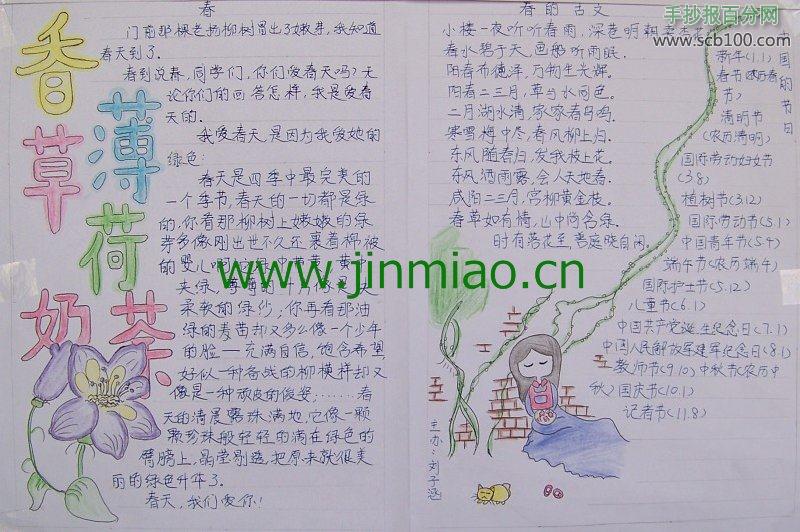 香草
薄荷
奶茶
春
门前那棵老杨柳树冒出了嫩芽,我知道
春天到了.
春到说春,同学们,你们爱春天吗?无
论你们的回答怎样,我是爱春
天的.
我爱春天,是因为我爱她的
绿色:
春天是四季中最完美的
一个季节,春天的一切都是绿
的,你看那柳树上嫩嫩的绿
芽多像刚出世不久还裹着棉被
的婴儿啊
柔软的绿纱,你再看那油
绿的麦苗却又多么像一个少年
的脸—充满自信,饱含希望,
好似一种备战的柳模样却又
像是一种顽皮的俊姿;……春
天的清晨露珠满地,它像一颗
颗珍珠般轻轻的滴在绿色的
臂膀上,晶莹剔透,把原来就很美
丽的绿色升华了.
春天,我们爱你!
春的古文
小楼一夜听春雨,深巷明朝卖杏花
春水碧于天,画船听雨眠.
阳春布德泽,万物生光辉.
阳春二三月,草与水同色.
二月湖水清,家家春鸟鸣.
寒雪梅中尽,春风柳上归.
东风随春归,发我枝上花.
东风洒雨露,会入天地春.
咸阳二三月,宫柳黄金枝.
春草如有情,山中尚含绿.
时有落花至,
国的节日
新年(1.1)
春节(农历春
节)
清明节
(农历清明)
国际劳动妇女节
(3.8)
植树节(3.12)
国际劳动节(5.1)
中国青年节(5.4)
端午节(农历端午)
国际护士节(5.12)
儿童节(6.1)
中国共产党诞生纪念日(7.1)
中国人民解放军建军纪念日(8.1)
教师节(9.10)中秋节(农历中
秋)国庆节(10.1)
记者节(11.8)
主办:刘子涵
手抄报百分网
www.scb100.com
www.jinmiao.cn